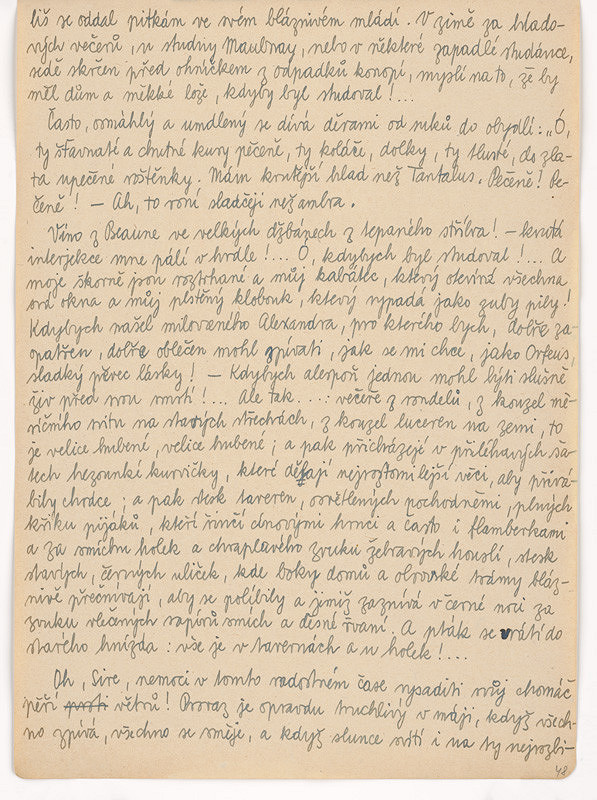 liš se oddal pitkám ve svém bláznivém mládí. V zimě za hlado-
vých večerů, u studny Maubuay, nebo v některé zapadlé studánce,
sedě skrčen před ohníčkem z odpadků konopí, myslí na to, že by
měl dům a měkké lože, kdyby byl studoval!...
Často, osmáhlý a umdlený se dívá děrami od suků do obydlí: „Ó,
ty šťavnaté a chutné kusy pečeně, ty koláče, dolky, ty tlusté, do zla-
ta upečené roštěnky. Mám krutější hlad než Tantalus. Pečeně! Pe-
čeně! — Ah, to voní sladčeji než ambra.
Víno z Beaune ve velkých džbánech z tepaného stříbra! — krutá
interjekce mne pálí v hrdle!... Ó, kdybych byl studoval!... A
moje škorně jsou roztrhané a můj kabátec, který otevírá všechna
svá okna a můj plstěný klobouk, který vypadá jako zuby pily!
Kdybych našel milovaného Alexandra, pro kterého bych, dobře za-
opatřen, dobře oblečen mohl zpívati, jak se mi chce, jako Orfeus,
sladký pěvec lásky! — Kdybych alespoň jednou mohl býti slušně
živ před svou smrtí!... Ale tak....: večeře z rondelů, z kouzel mě-
síčního svitu na starých střechách, z kouzel luceren na zemi, to
je velice hubené, velice hubené; a pak přicházejí v přiléhavých ša-
tech hezounké kurvičky, které dělají nejroztomilejší věci, aby přivá-
bily chodce; a pak stesk taveren, osvětlených pochodněmi, plných
křiku pijáků, kteří řinčí cínovými hrnci a často i flamberkami
a za smíchu holek a chraplavého zvuku žebravých houslí, stesk
starých, černých uliček, kde boky domů a obrovské trámy bláz-
nivě přečnívají, aby se políbily a jimiž zaznívá v černé noci za
zvuku vlečených rapírů smích a děsné řvaní. A pták se vrátí do
starého hnízda: vše je v tavernách a u holek!...
Oh, Sire, nemoci v tomto radostném čase vysaditi svůj chomáč
peří větrů! Provaz je opravdu truchlivý v máji, když všech-
no zpívá, všechno se směje, a když slunce svítí i na ty nejrozbi-
48